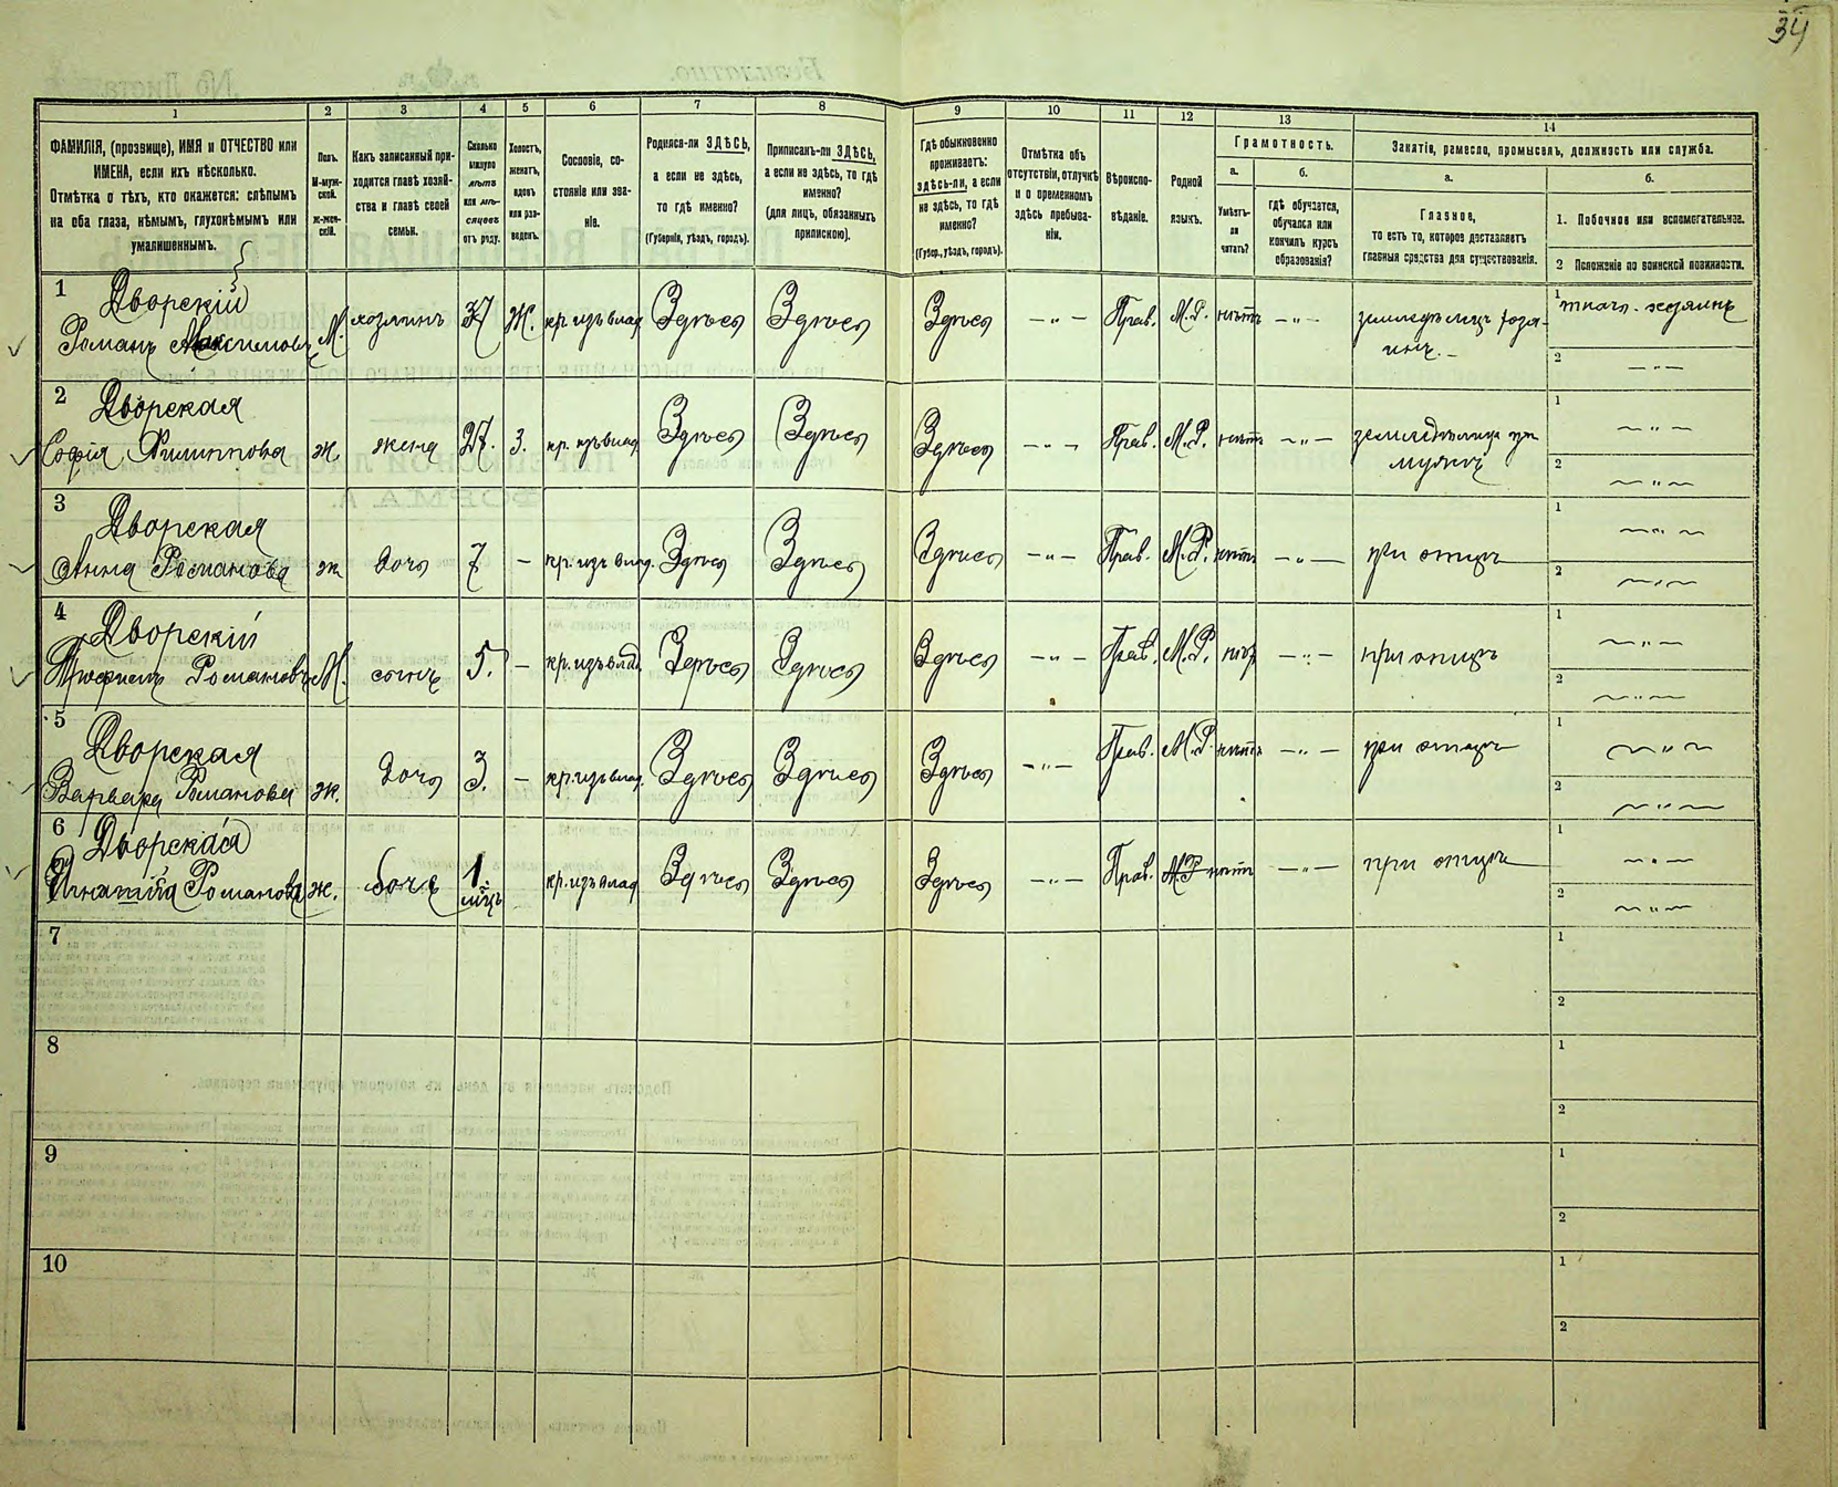 34
1
2
3
4
5
6
7
8
9
10
11
12
13
14
ФАМИЛІЯ, (прозвище), ИМЯ и ОТЧЕСТВО или
ИМЕНА, если ихъ нѣсколько.
Отмѣтка о тѣхъ, кто окажется: слѣпымъ
на оба глаза, нѣмымъ, глухонѣмымъ или
умалишеннымъ.
Полъ.
М-муж-
ской.
ж-жен-
скій.
Какъ записанный при-
ходится главѣ хозяй-
ства и главѣ своей
семьи.
Сколько
минуло
лѣтъ
или мѣ-
сяцевъ
отъ роду.
Холостъ,
женатъ,
вдовъ
или раз-
веденъ.
Сословіе, со-
стояніе или зва-
ніе.
Родился-ли ЗДѢСЬ,
а если не здѣсь,
то гдѣ именно?
(Губернія, уѣздъ, городъ).
Приписанъ-ли ЗДѢСЬ,
а если не здѣсь, то гдѣ
именно?
(для лицъ, обязанныхъ
припискою).
Гдѣ обыкновенно
проживаетъ:
здѣсь-ли, а если
не здѣсь, то гдѣ
именно?
(Губер., уѣздъ, городъ).
Отмѣтка объ
отсутствіи, отлучкѣ
и о временномъ
здѣсь пребыва-
ніи.
Вѣроиспо-
вѣданіе.
Родной
языкъ.
Грамотность.
а.
Умѣетъ-
ли
читать?
б.
гдѣ обучается,
обучался или
кончилъ курсъ
образованія?
Занятіе, ремесло, промыселъ, должность или служба.
а.
Главное,
то есть то, которое доставляетъ
главныя средства для существованія.
б.
1. Побочное или вспомогательное.
2 Положеніе по воинской повинности.
1 Дворскій
Романъ Максимовъ М. хозяинъ 37 Ж. кр. изъ влад. Здѣсь Здѣсь Здѣсь — " — Прав. М.Р. нѣтъ — " — земледѣлецъ хозя-
инъ. —
1
хозяинъ
2 — " —
2 Дворская
Софія Филиппова ж. жена 27. З. кр. изъ влад. Здѣсь Здѣсь Здѣсь — " — Прав. М.Р. нѣтъ — " — земледѣлица при
мужѣ
1 — " —
2 — " —
3 Дворская
Анна Романова ж дочь 7 — кр. изъ влад. Здѣсь Здѣсь Здѣсь — " — Прав. М.Р. нѣтъ — " — при отцѣ
1 — " —
2 — " —
4 Дворскій
Романовъ М. сынъ 5. — кр. изъ влад. Здѣсь Здѣсь Здѣсь — " — Прав. М.Р. — " — при отцѣ
1 — " —
2 — " —
5 Дворская
Варвара Романова ж. дочь 3. — кр. изъ влад. Здѣсь Здѣсь Здѣсь — " — Прав. М.Р. нѣтъ — " — при отцѣ
1 — " —
2 — " —
6 Дворская
Романова ж. дочь 1 мѣц кр. изъ влад Здѣсь Здѣсь Здѣсь — " — Прав. М.Р. нѣтъ — " — при отцѣ
1 — " —
2 — " —
7
1
2
8
1
2
9
1
2
10
1
2